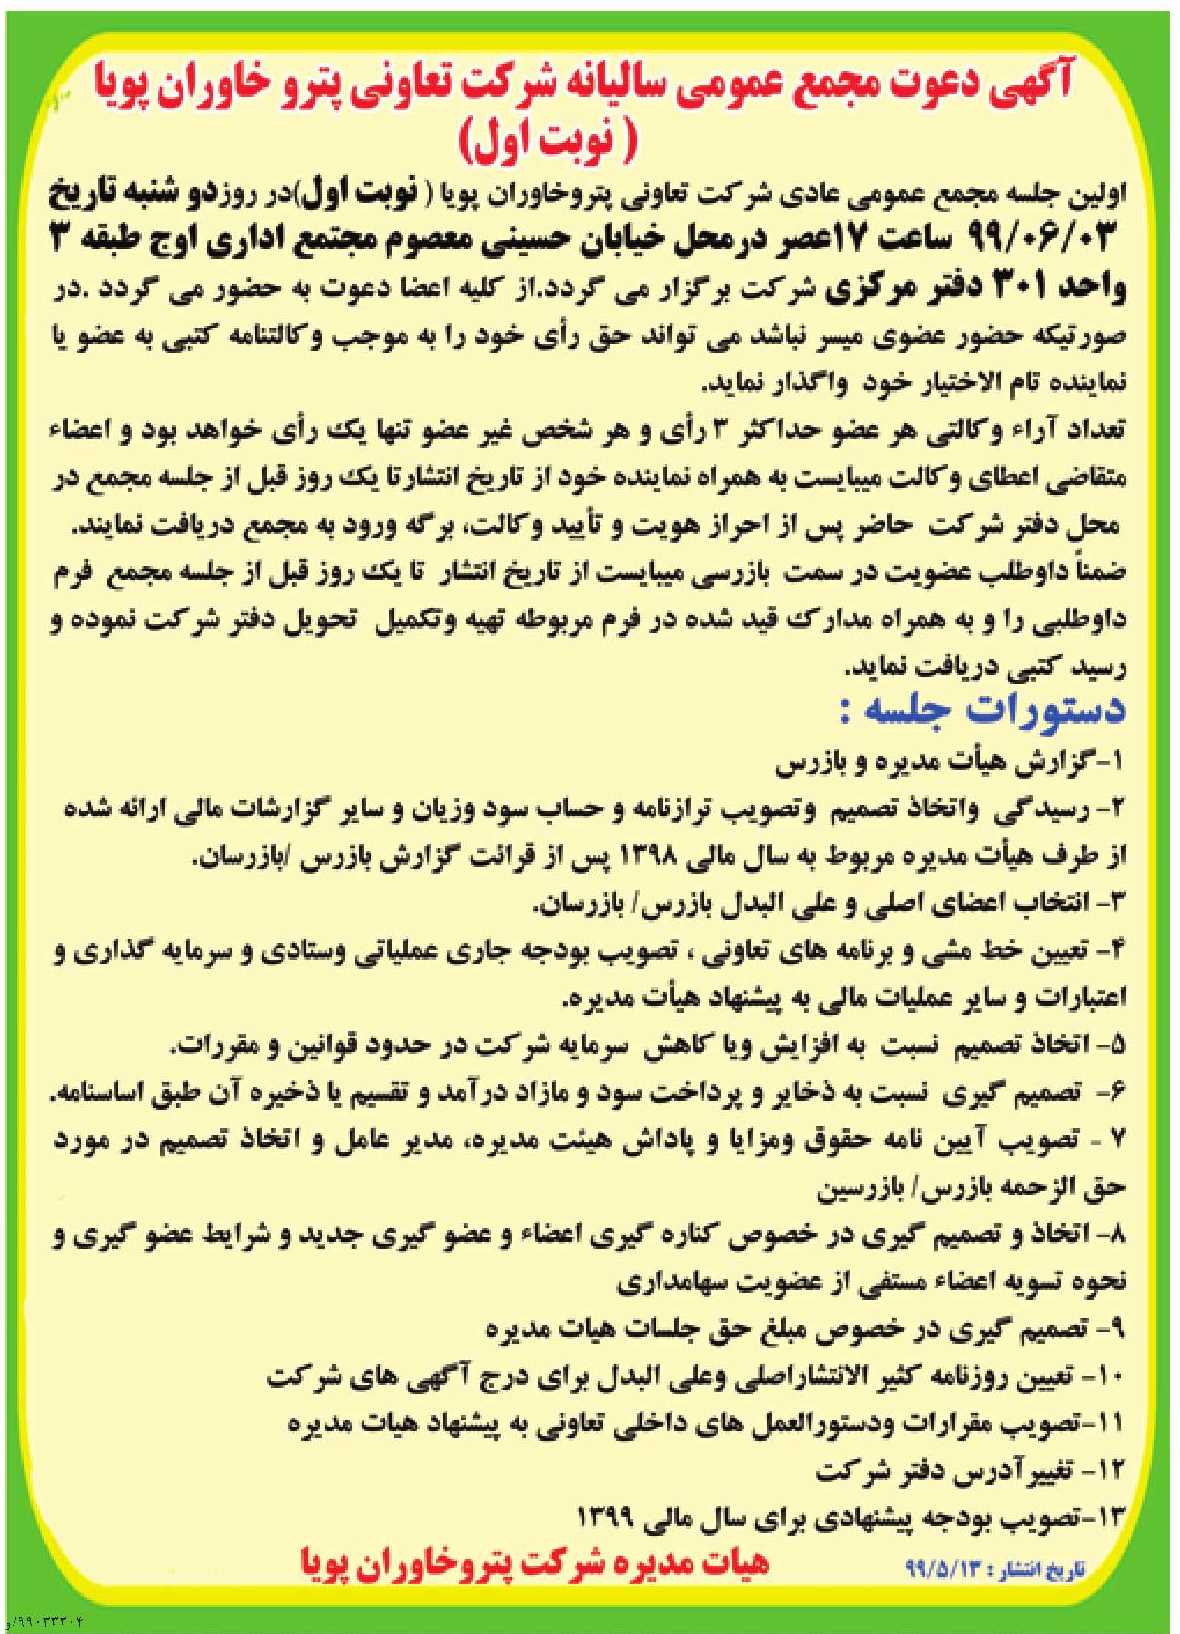 آگهی دعوت مجمع عمومی سالیانه شرکت تعاونی پترو خاوران پویا
( نوبت اول)
اولین جلسه مجمع عمومی عادی شرکت تعاونی پتروخاوران پویا ( نوبت اول)در روزدو شنبه تاریخ
۹۹/۰۶/۰۳ ساعت ۱۷عصر درمحل خیابان حسینی معصوم مجتمع اداری اوج طبقه ۳
واحد ۳۰۱ دفتر مرکزی شرکت برگزار می گردد.از کلیه اعضا دعوت به حضور می گردد .در
صورتیکه حضور عضوی میسر نباشد می تواند حق رأی خود را به موجب وکالتنامه کتبی به عضو یا
نماینده تام الاختیار خود واگذار نماید.
تعداد آراء وکالتی هر عضو حداکثر ۳ رأی و هر شخص غیر عضو تنها یک رأی خواهد بود و اعضاء
متقاضی اعطای وکالت میبایست به همراه نماینده خود از تاریخ انتشارتا یک روز قبل از جلسه مجمع در
محل دفتر شرکت حاضر پس از احراز هویت و تأیید وکالت، برگه ورود به مجمع دریافت نمایند.
ضمناً داوطلب عضویت در سمت بازرسی میبایست از تاریخ انتشار تا یک روز قبل از جلسه مجمع فرم
داوطلبی را و به همراه مدارک قید شده در فرم مربوطه تهیه وتکمیل تحویل دفتر شرکت نموده و
رسید کتبی دریافت نماید.
دستورات جلسه :
۱-گزارش هیأت مدیره و بازرس
۲- رسیدگی واتخاذ تصمیم وتصویب ترازنامه و حساب سود وزیان و سایر گزارشات مالی ارائه شده
از طرف هیأت مدیره مربوط به سال مالی ۱۳۹۸ پس از قرائت گزارش بازرس /بازرسان.
۳- انتخاب اعضای اصلی و علی البدل بازرس/ بازرسان.
۴- تعیین خط مشی و برنامه های تعاونی ، تصویب بودجه جاری عملیاتی وستادی و سرمایه گذاری و
اعتبارات و سایر عملیات مالی به پیشنهاد هیأت مدیره.
۵- اتخاذ تصمیم نسبت به افزایش ویا کاهش سرمایه شرکت در حدود قوانین و مقررات.
۶- تصمیم گیری نسبت به ذخایر و پرداخت سود و مازاد درآمد و تقسیم یا ذخیره آن طبق اساسنامه.
۷ - تصویب آیین نامه حقوق ومزایا و پاداش هیئت مدیره، مدیر عامل و اتخاذ تصمیم در مورد
حق الزحمه بازرس/ بازرسین
۸- اتخاذ و تصمیم گیری در خصوص کناره گیری اعضاء و عضو گیری جدید و شرایط عضو گیری و
نحوه تسویه اعضاء مستفی از عضویت سهامداری
۹- تصمیم گیری در خصوص مبلغ حق جلسات هیات مدیره
۱۰- تعیین روزنامه کثیر الانتشاراصلی وعلی البدل برای درج آگهی های شرکت
۱۱-تصویب مقرارات ودستورالعمل های داخلی تعاونی به پیشنهاد هیات مدیره
۱۲- تغییرآدرس دفتر شرکت
۱۳-تصویب بودجه پیشنهادی برای سال مالی ۱۳۹۹
تاریخ انتشار : ۹۹/۵/۱۳
هیات مدیره شرکت پتروخاوران پویا
۹۹۰۳۳۲۰۴/و